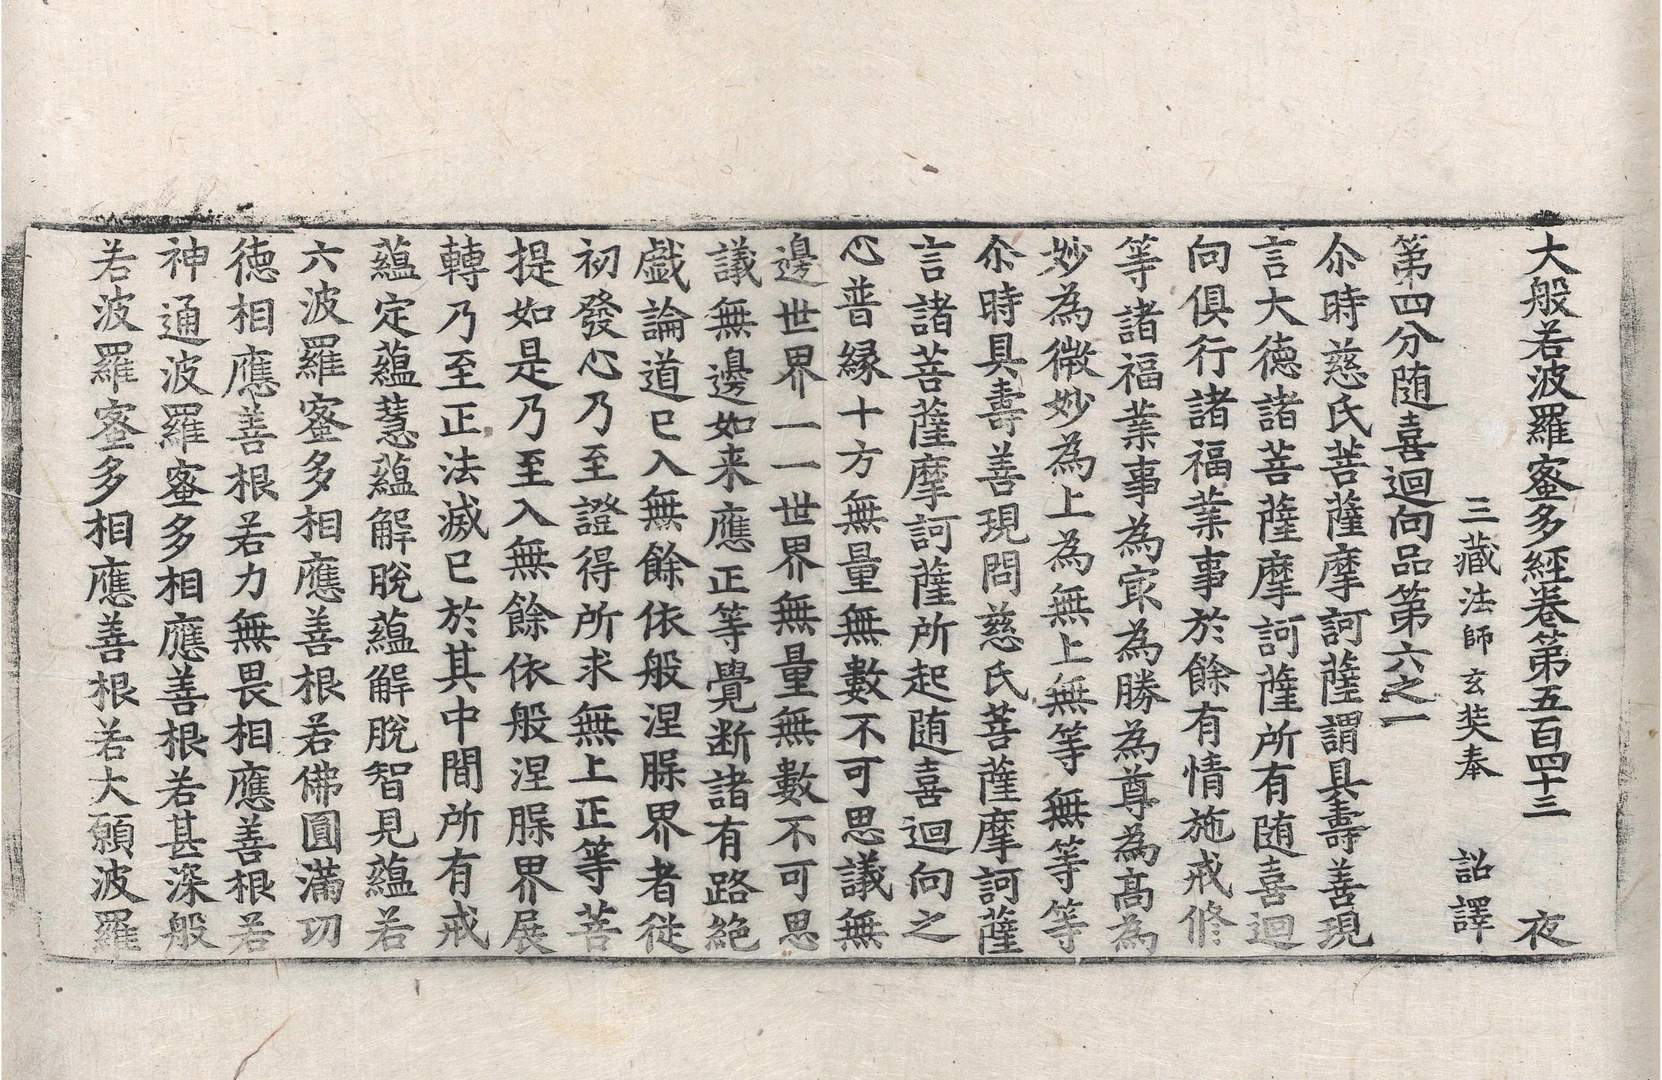 大般若波羅蜜多經卷第五百四十三 夜
三藏法師玄奘奉 詔譯
第四分随喜迴向品第六之一
尒時慈氏菩薩摩訶薩謂具壽善現
言大德諸菩薩摩訶薩所有随喜迴
向俱行諸福業事於餘有情施戒修
等諸福業事為㝡為勝為尊為髙為
妙為微妙為上為無上無等無等等
尒時具壽善現問慈氏菩薩摩訶薩
言諸菩薩摩訶薩所起随喜迴向之
心普緣十方無量無數不可思議無
邊世界一一世界無量無數不可思
議無邊如来應正等覺断諸有路絶
戲論道已入無餘依般涅槃界者從
初發心乃至證得所求無上正等菩
提如是乃至入無餘依般涅槃界展
轉乃至正法滅已於其中間所有戒
蘊定蘊慧蘊解脫蘊解脫智見蘊若
六波羅蜜多相應善根若佛圓滿功
德相應善根若力無畏相應善根若
神通波羅蜜多相應善根若甚深般
若波羅蜜多相應善根若大願波羅